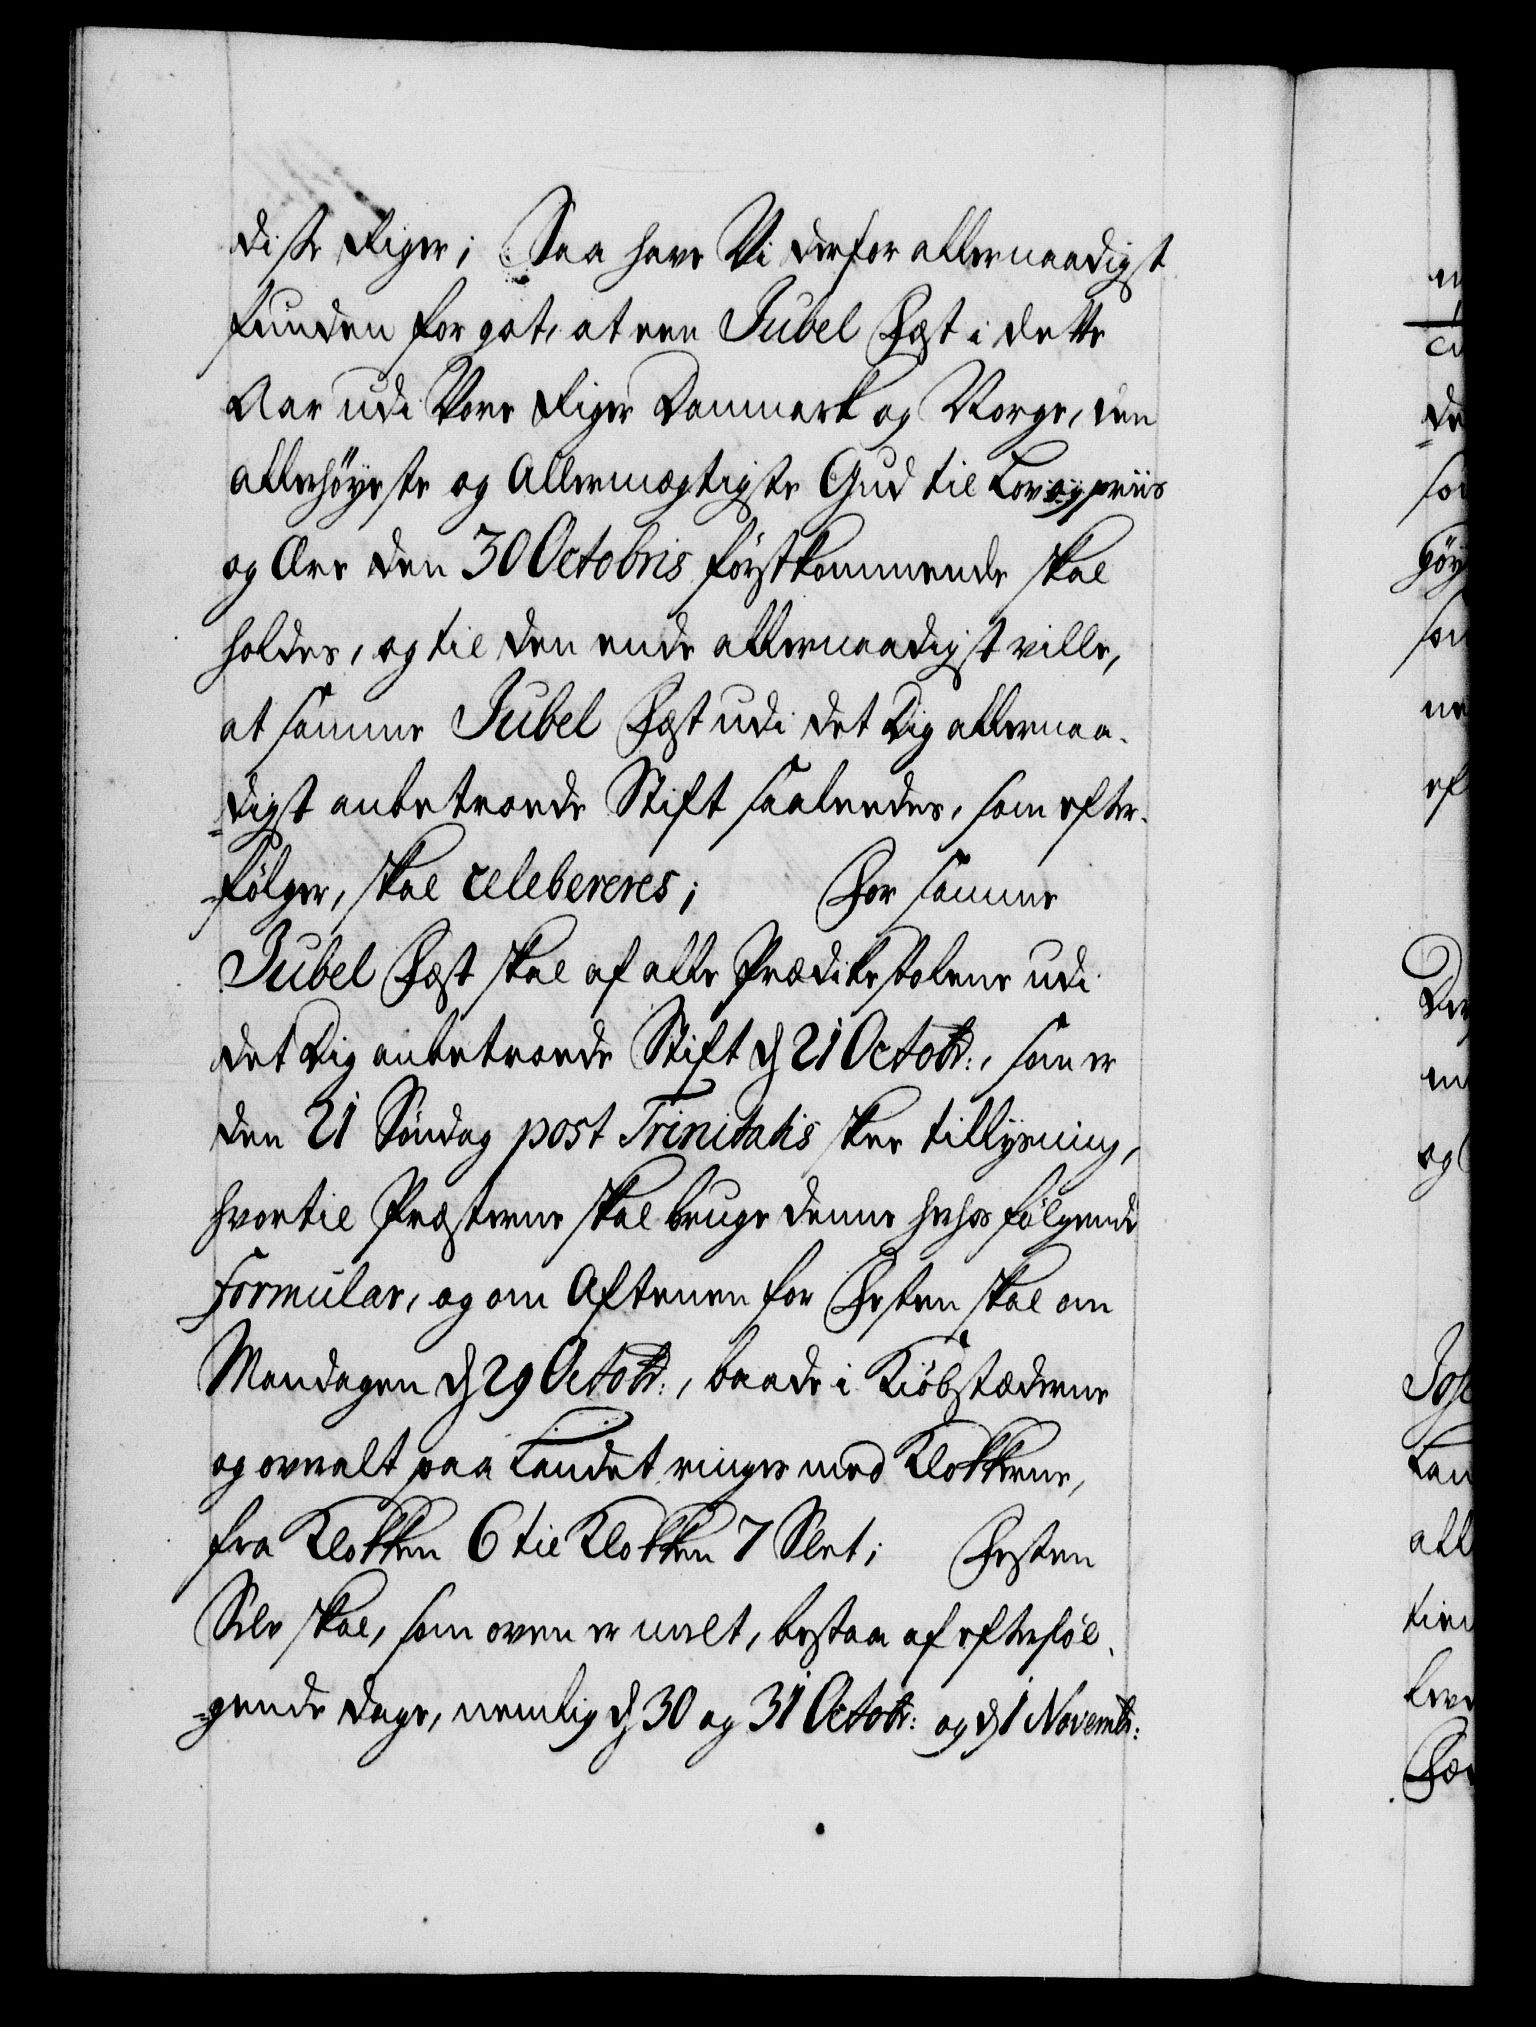 disse Riger; Saa have Vi derfor allernaadigst
funden for got, at een Jubel Fæst i dette
Aar udi Vore Riger Danmark og Norge, den
allerhöyeste og Allermægtigste Gud til Lov og priis
og Ære den 30 Octobris förstkommende skal
holdes, og til den ende allernaadigst ville,
at samme Jubel Fæst udi det Dig allernaa-
digst anbetroede Stift saaleedes, som efter-
fölger, skal celebereres; For samme
Jubel Fæst skal af alle Prædikestolene udi
det Dig anbetroede Stift d 21 Octobr:, som er
den 21 Söndag post Trinitatis skee tillysning,
hvortil Præsterne skal bruge denne hrhos fölgende
Formular, og om Aftenen for Festen skal om
Mandagen d 29 Octobr:, baade i Kiöbstæderne
og overalt paa Landet ringes med Klokkerne,
fra Klokken 6 til Klokken 7 Slet; Festen
Selv skal, som oven er melt, bestaa af efterföl-
gende dage, nemlig d 30 og 31 Octobr: og d 1 Novembr: